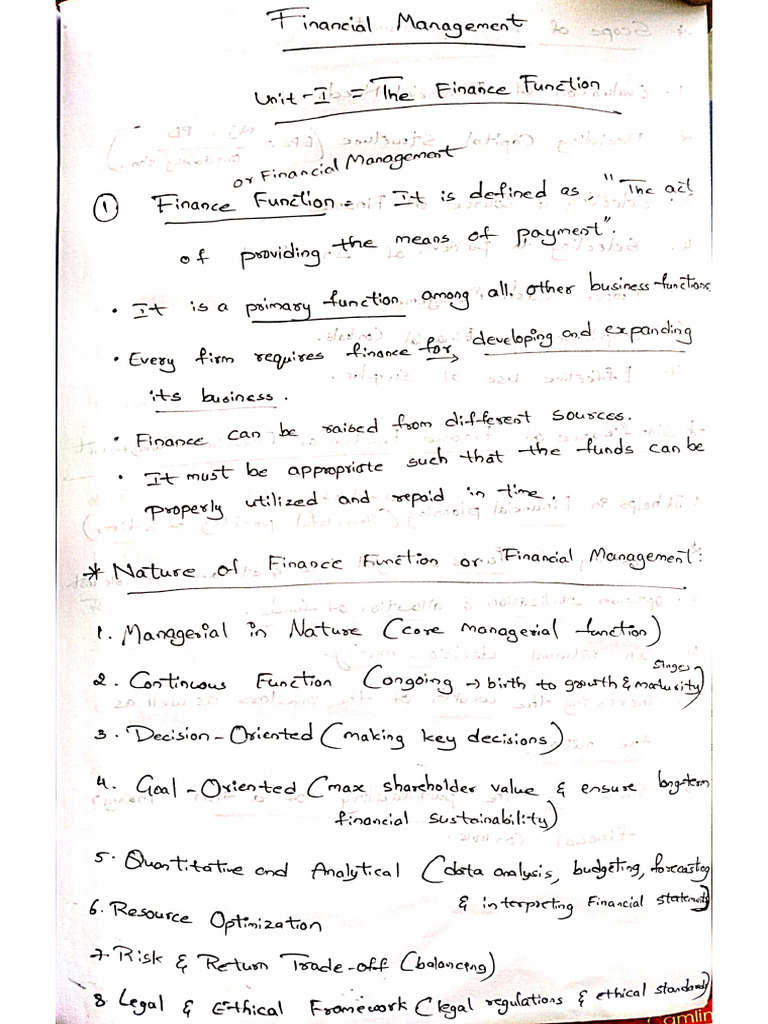 Financial Management
Unit-I = The Finance Function
or Financial Management
① Finance Function = It is defined as "The act
of providing the means of payment".
• It is a primary function among all other business functions
• Every firm requires finance for developing and expanding
its business.
• Finance can be raised from different sources.
• It must be appropriate such that the funds can be
properly utilized and repaid in time.
* Nature of Finance Function or Financial Management:
1. Managerial in Nature (core managerial function)
2. Continuous Function (ongoing → birth to growth & maturity stages)
3. Decision-Oriented (making key decisions)
4. Goal-Oriented (max shareholder value & ensure long-term
financial sustainability)
5. Quantitative and Analytical (data analysis, budgeting, forecasting
& interpreting Financial statements)
6. Resource Optimization
7. Risk & Return Trade-off (balancing)
8. Legal & Ethical Framework (legal regulations & ethical standards)
amlin